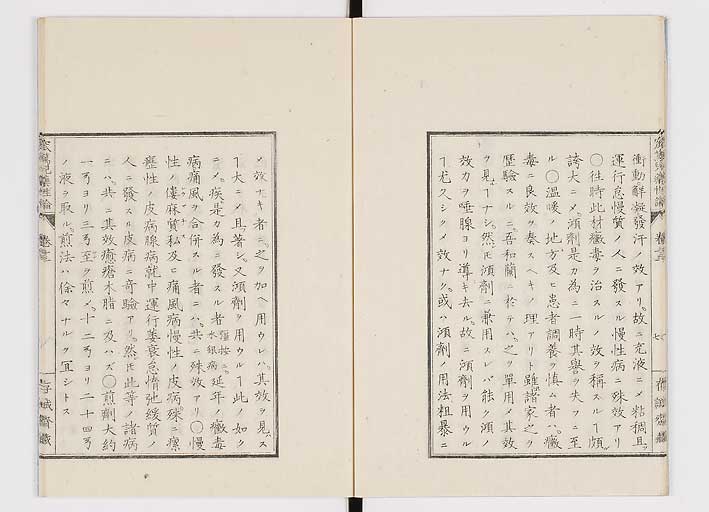 衝動解凝發汗ノ效アリ。故ニ充液ニメ粘稠且ツ
運行怠慢質ノ人ニ發スル慢性病ニ殊效アリ
〇往時此材黴毒ヲ治スルノ效ヲ稱スルヿ頗ル
誇大ニメ。澒劑是カ為ニ一時其譽ヲ失フニ至
ル〇溫暖ノ地方及ヒ患者調養ヲ慎ム者ハ。黴
毒ニ良效ヲ奏スヘキノ理アリト雖諸家之ヲ
歷驗スルニ。吾和蘭ニ於テハ。之ヲ單用メ其效
ヲ見ヿナシ。然𪜈澒劑ニ兼用スレバ能ク澒ノ
效力ヲ唾腺ヨリ導キ去ル。故ニ澒劑ヲ用ウル
ヿ尤久シクメ效ナク。或ハ澒劑ノ用法粗暴ニ
メ效ナキ者ニ。之ヲ加ヘ用ウレハ。其效ヲ見ス
ヿ大ニメ且著シ。又澒劑ヲ用ウルヿ此ノ如ク
ニメ。疾是カ為ニ發スル者 水銀病 延年ノ黴毒
病痛風ヲ合併スル者ニハ。共ニ殊效アリ〇慢
性ノ僂麻質私及ヒ痛風病慢性ノ皮病。殊ニ瘰
癧性ノ皮病腺病就中運行萎衰怠惰弛緩質ノ
人ニ發スル皮病ニ奇驗アリ。然𪜈此等ノ諸病
ニハ。共ニ其效癒瘡木脂ニ及ハズ〇煎劑大約
一ヨリ三至ク煎メ。十二ヨリ二十四
ノ液ヲ取ル。煎法ハ徐々ナルヲ宜シトス